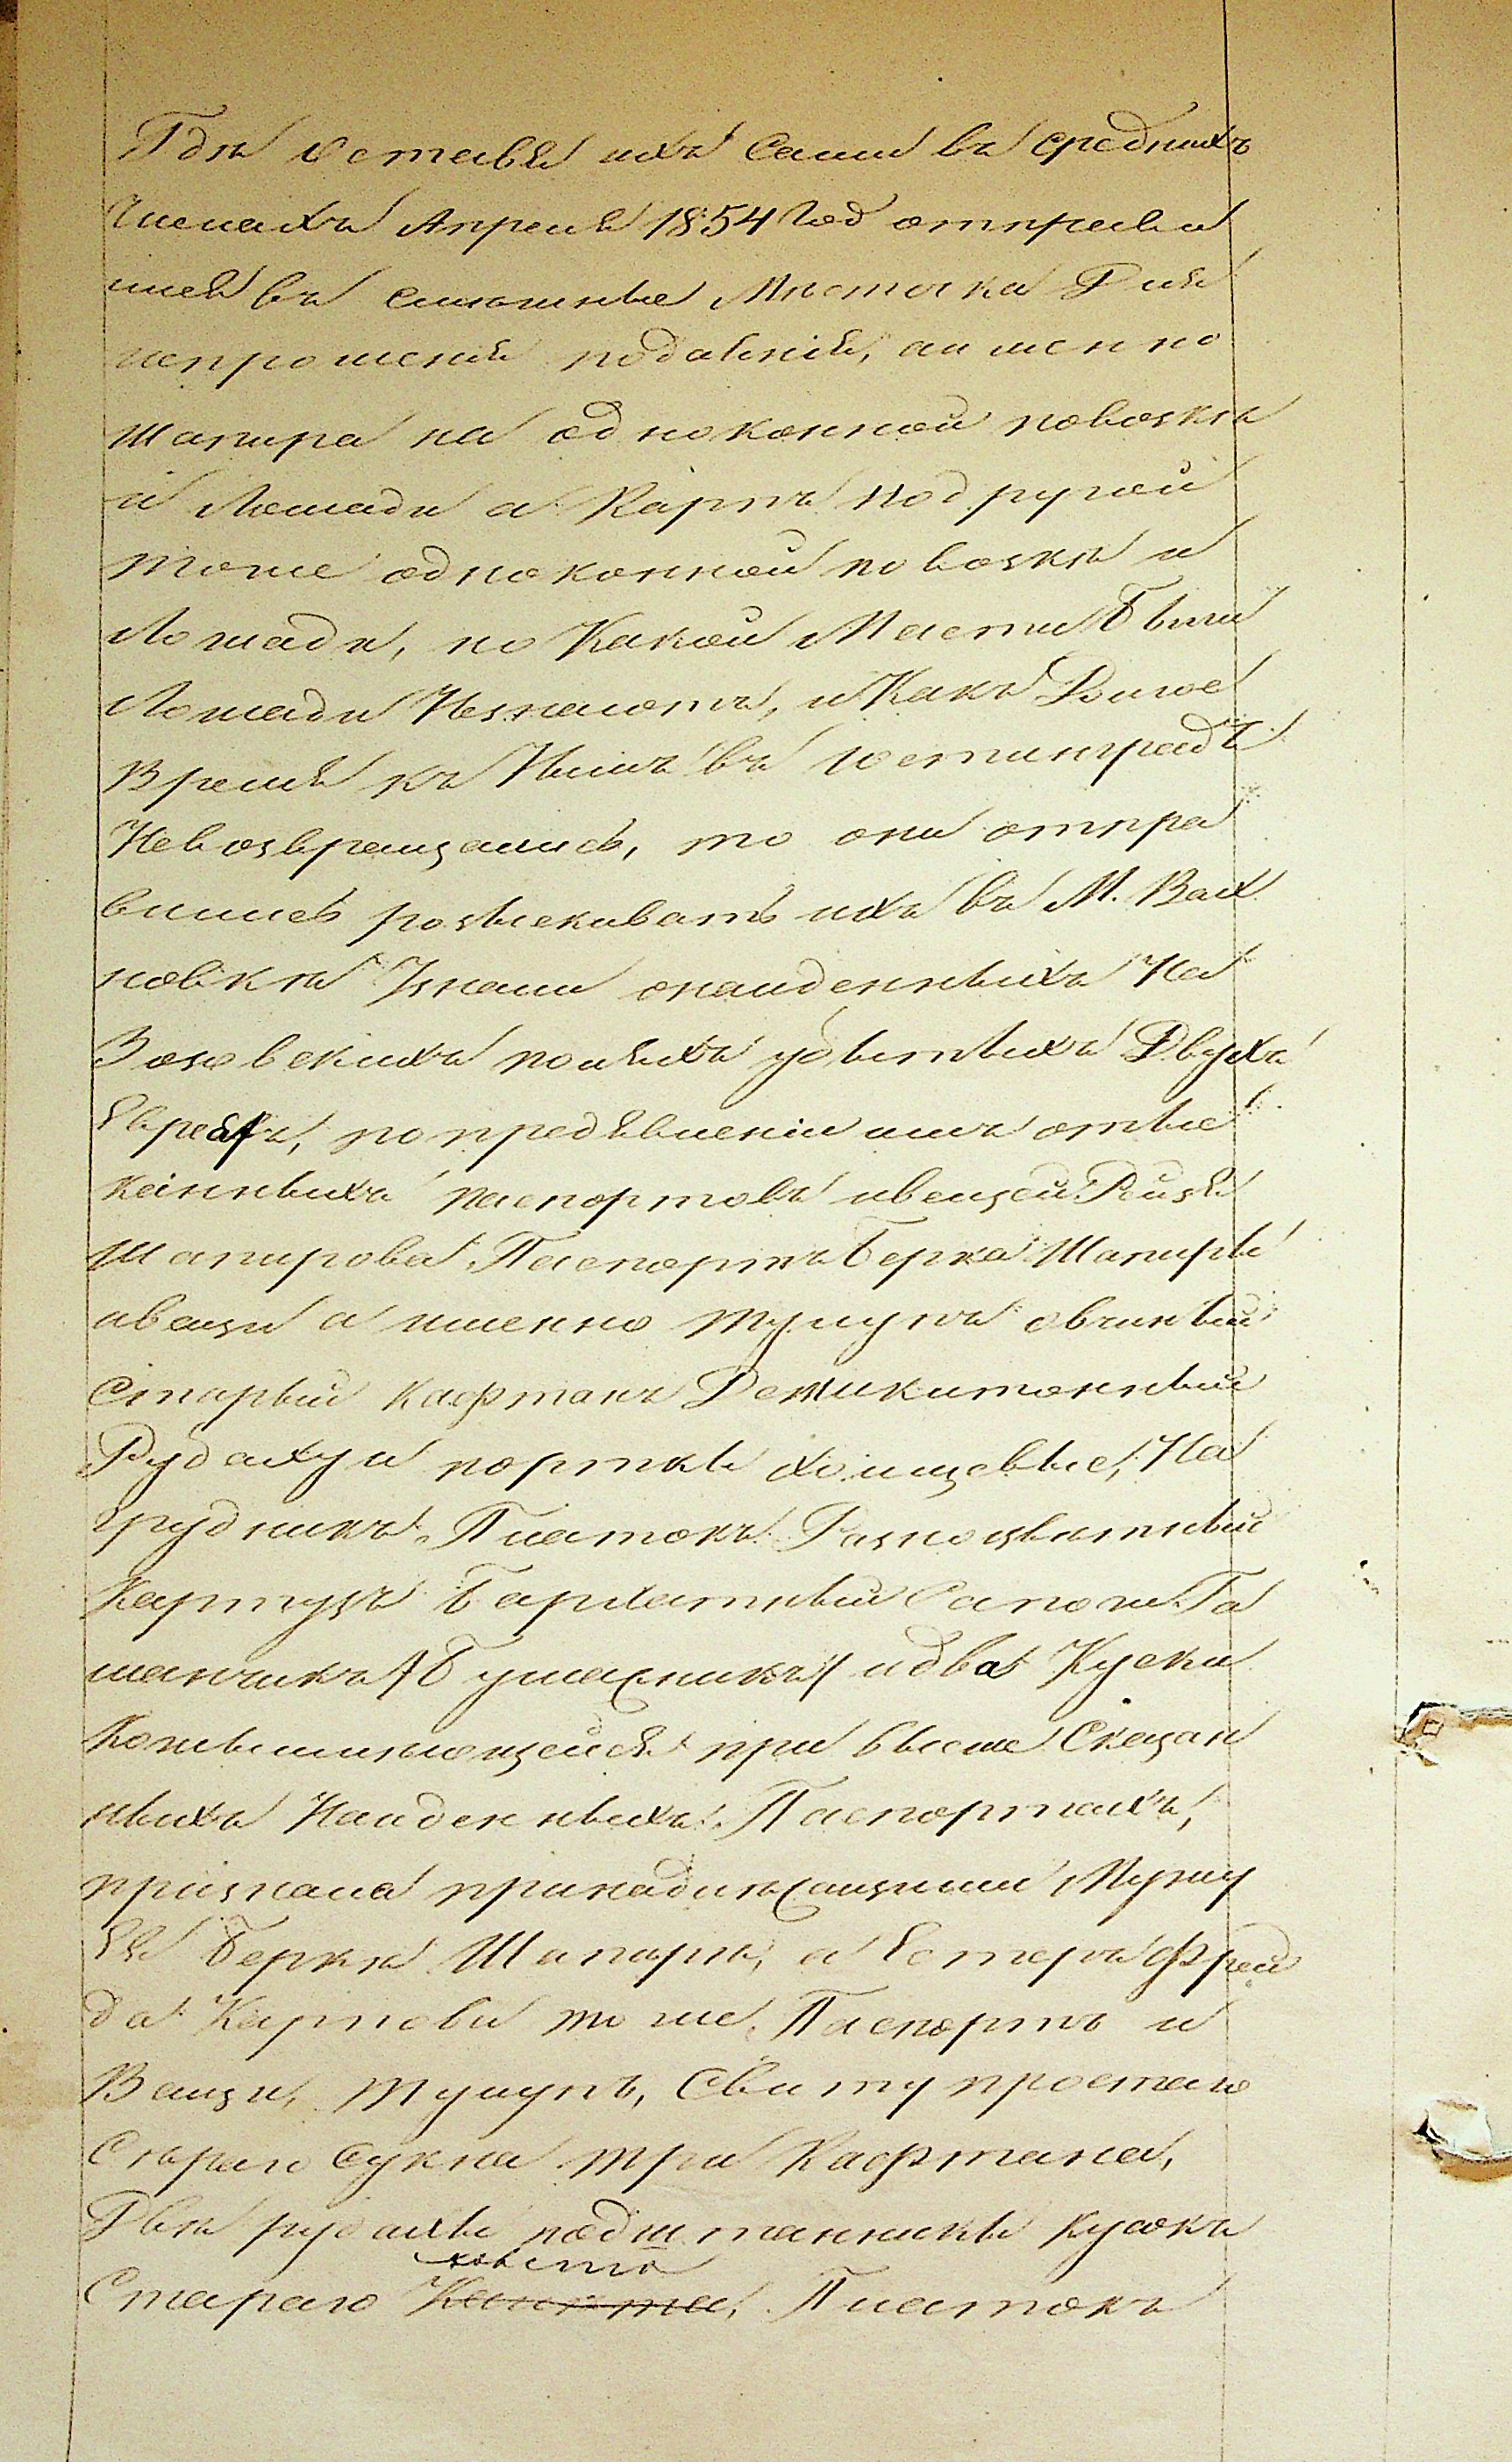 Гдѣ оставя ихъ Сами въ среднихъ
Числахъ Апреля 1854 год отправи
лися въ смежные Мѣстечка Для
испрошенія подаянія, аименно
Шапира на одноконной повозкѣ
и Лошади а Карпъ подругой
тоже одноконной повозкѣ и
Лошади, но Какой Масти Были
Лошади Незнаютъ, и Какъ Долгое
Время къ Нимъ въ Устинградѣ
Невозвращались, то они отпра
вились розыскивать ихъ въ М. Вах
новкѣ Узнали онайденныхъ На
Зозовскихъ поляхъ убитыхъ Двухъ
Евреяхъ, по предявленіи имъ отыс
канныхъ паспортовъ ивещей Рейзя
Шапирова, Паспортъ Берка Шапиры
ивещи а именно тулупъ овчиный
Старый Кафтанъ Демикитонный
Рубаху и портки холщевые, На
грудникъ, Платокъ Разноцвѣтный
Картузъ Бархатный Сапоги Га
манчикъ /Бумажникъ/ идва Куска
при выше Сказан
ныхъ Найденныхъ Паспортахъ,
признала принадлежащими Мужу
Ея Беркѣ Шапирѣ, а Естеръ Фрей
да Карпова то же Паспортъ и
Вещи, Тулупъ, Свиту простаго
Сѣраго Сукна три Кафтана,
Двѣ рубахи подштанники кусокъ
Стараго холста Платокъ